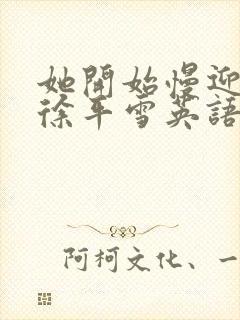 她開始慢迎
徐平雪英語
阿柯文化、一